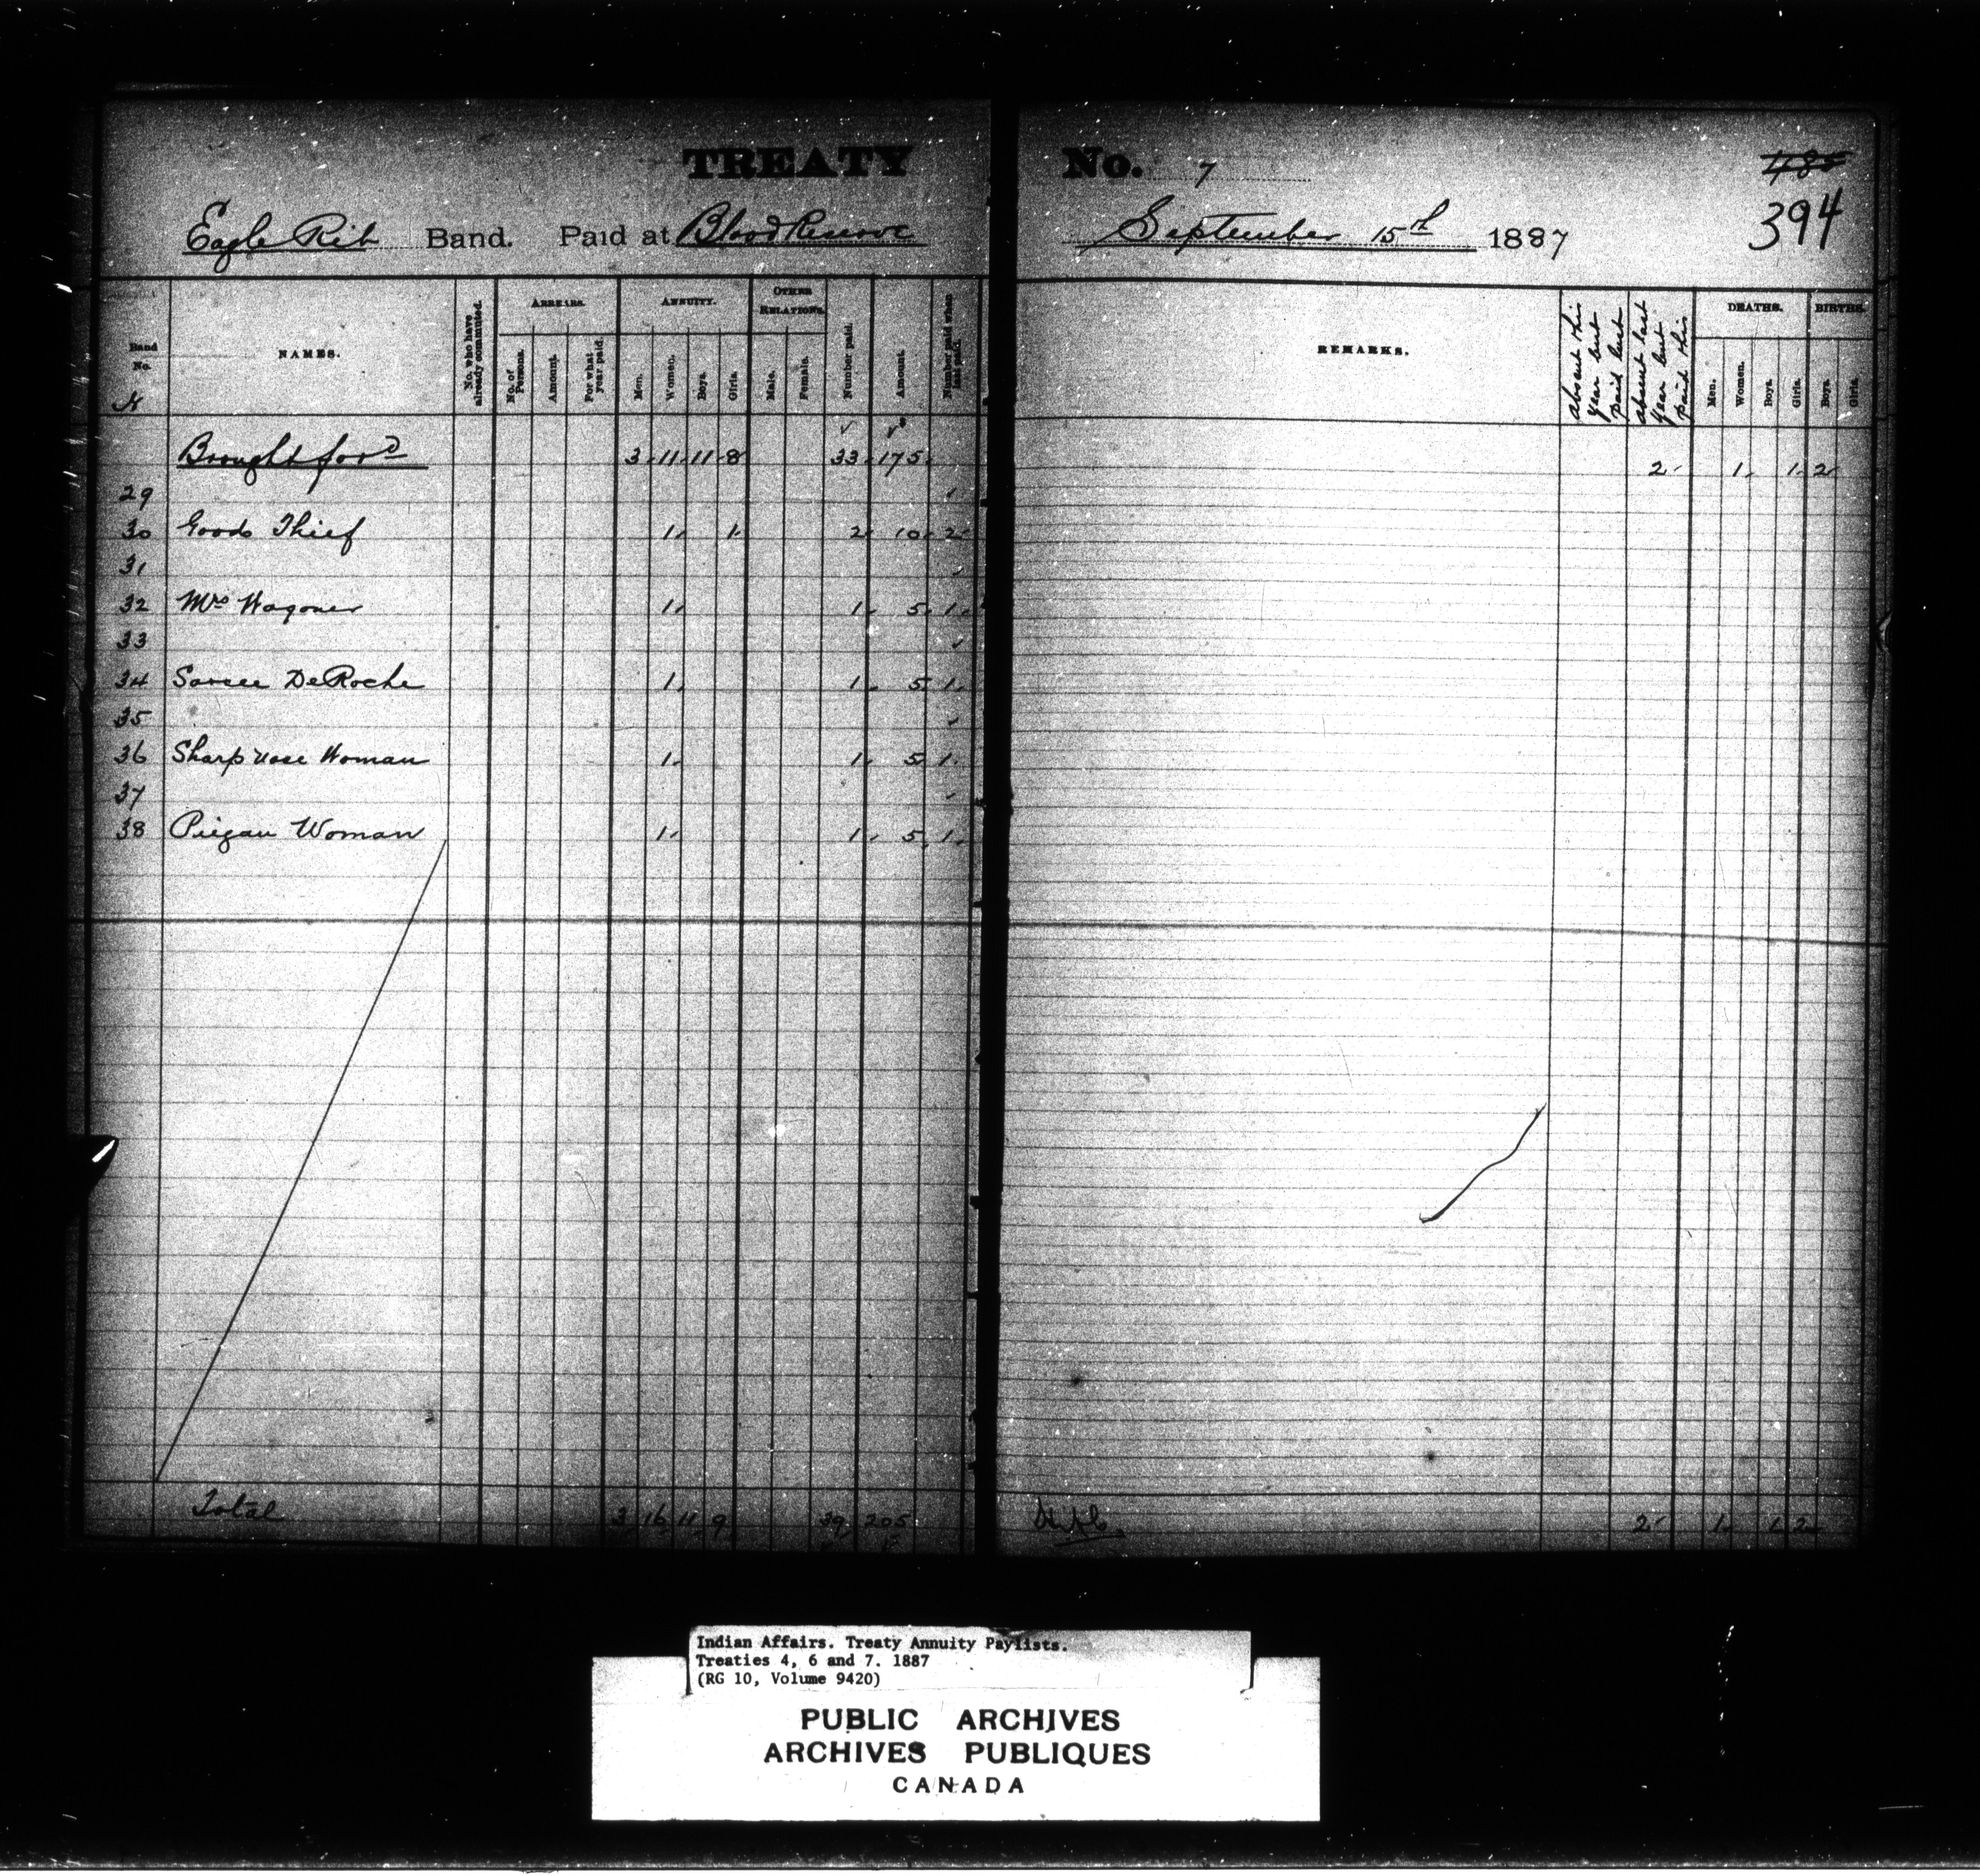 TREATY No. 7
485
394
Eagle Rib Band. Paid at Blood Reserve September 15th 1887
Band No. NAMES. No. who have already commuted. ARREARS. No. of Persons. Amount. For what year paid. ANNUITY. Men. Women. Boys. Girls. OTHER RELATIONS. Male. Female. Number paid. Amount. Number paid when last paid. REMARKS. absent this year but paid last absent last year but paid this DEATHS. Men. Women. Boys. Girls. BIRTHS. Boys. Girls.
Brought for'd 3 11 11 8 33 175 2 1 1 2
29
30 Good Thief 1 1 2 10 2
31
32 Mrs Wagoner 1 1 5 1
33
34 Sarcee DeRoche 1 1 5 1
35
36 Sharp nose Woman 1 1 5 1
37
38 Piegan Woman 1 1 5 1
Total 3 16 11 9 39 205 2 1 1 2
Indian Affairs. Treaty Annuity Paylists.
Treaties 4, 6 and 7. 1887
(RG 10, Volume 9420)
PUBLIC ARCHIVES
ARCHIVES PUBLIQUES
CANADA